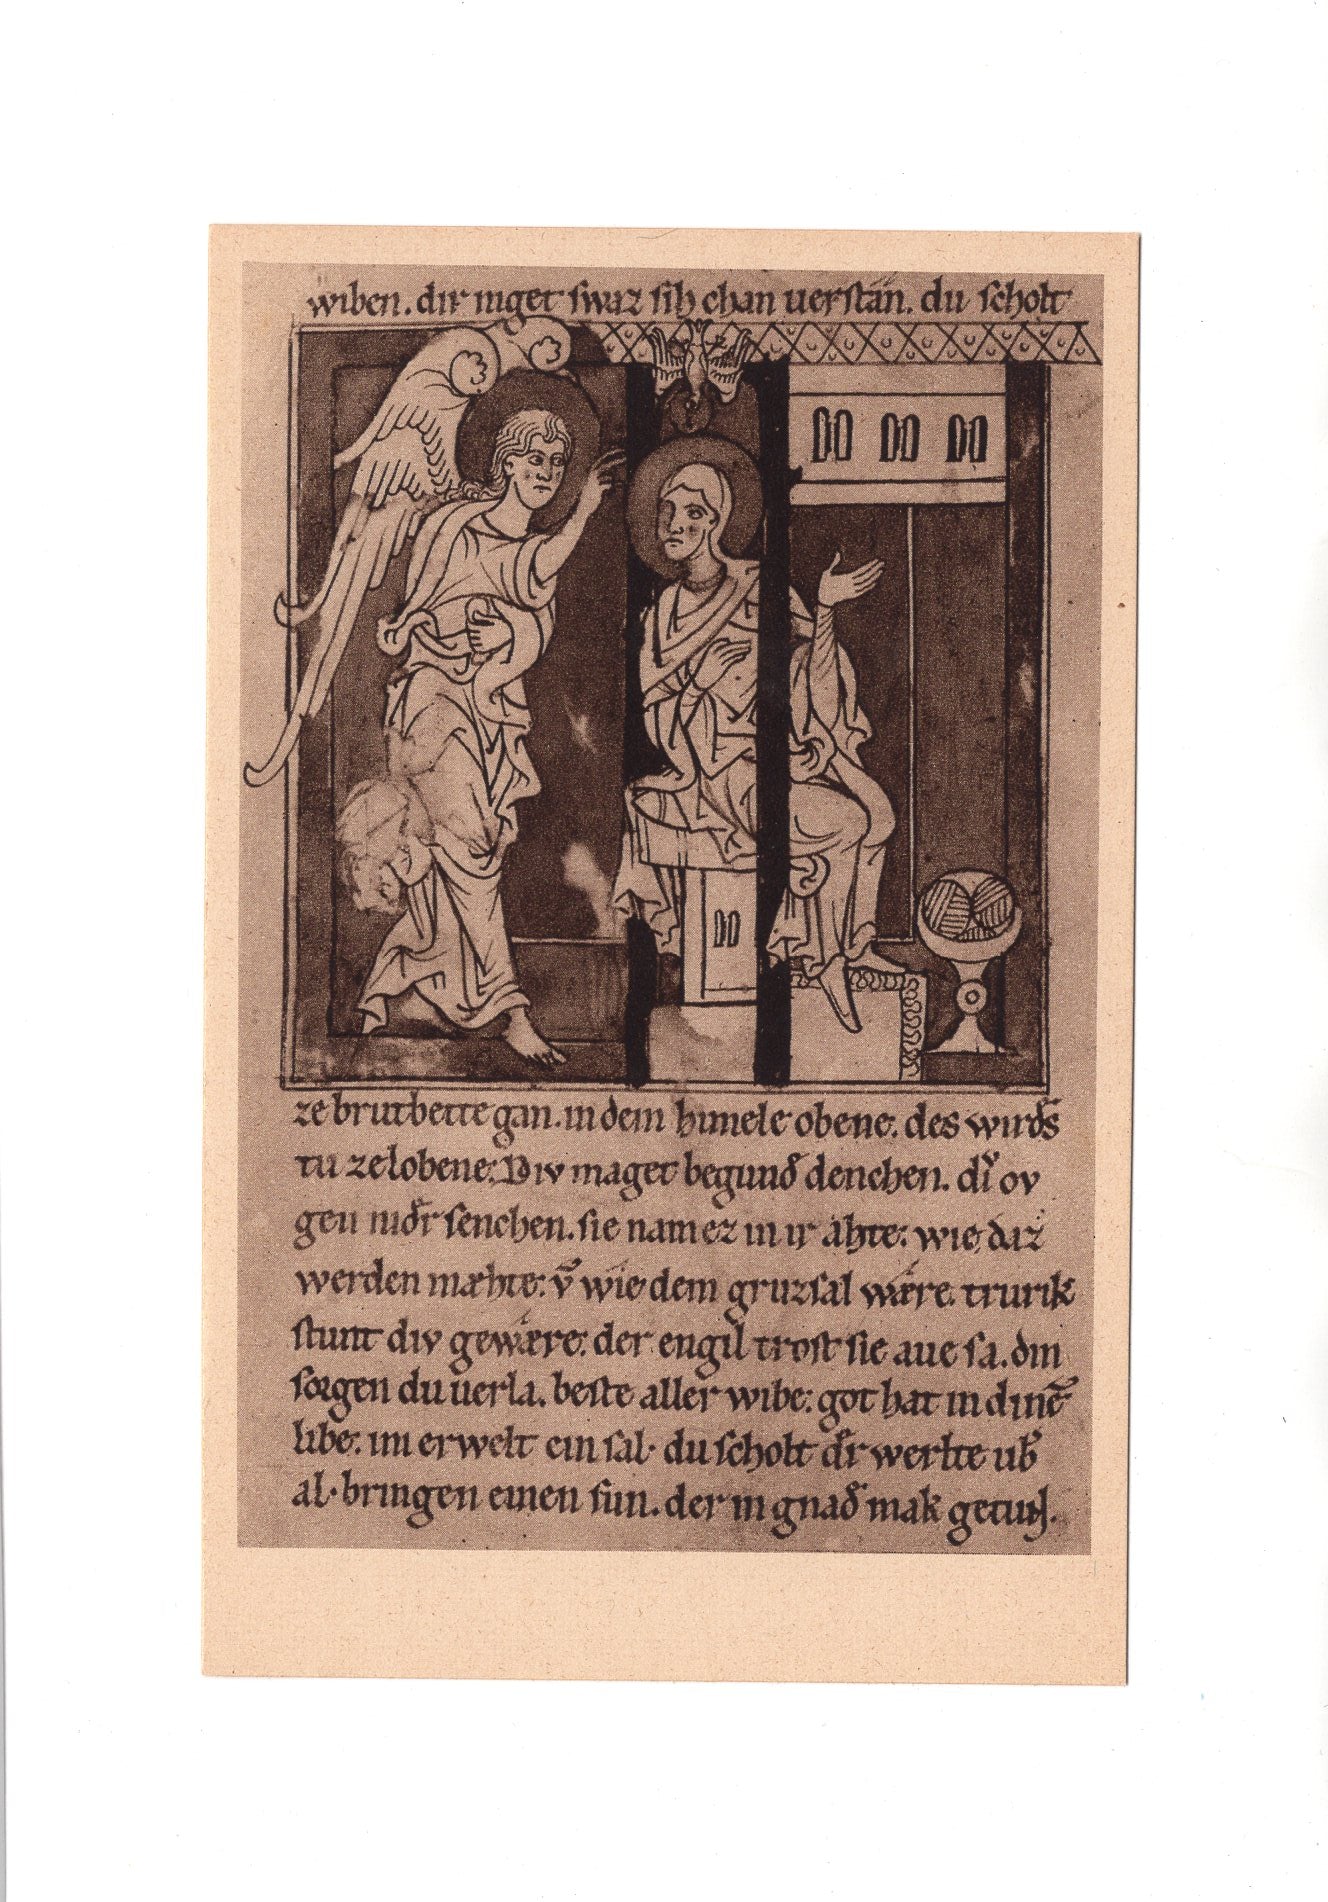 wiben. dir niget swaz sih chan uerstan. du scholt
ze brutbette gan. in dem himele obene. des wirds
tu ze lobene. Div maget begund denchen. di ov
gen nidr senchen. sie nam ez in ir ahte. wie daz
werden mæhte. vn̄ wie dem gruzsal wære. trurik
stunt div gewære. der engil trost sie aue sa. din
sorgen du uerla. beste aller wibe. got hat in dinē
libe. im erwelt ein sal. du scholt dr werlte ub
al. bringen einen sun. der in gnad mak getun.